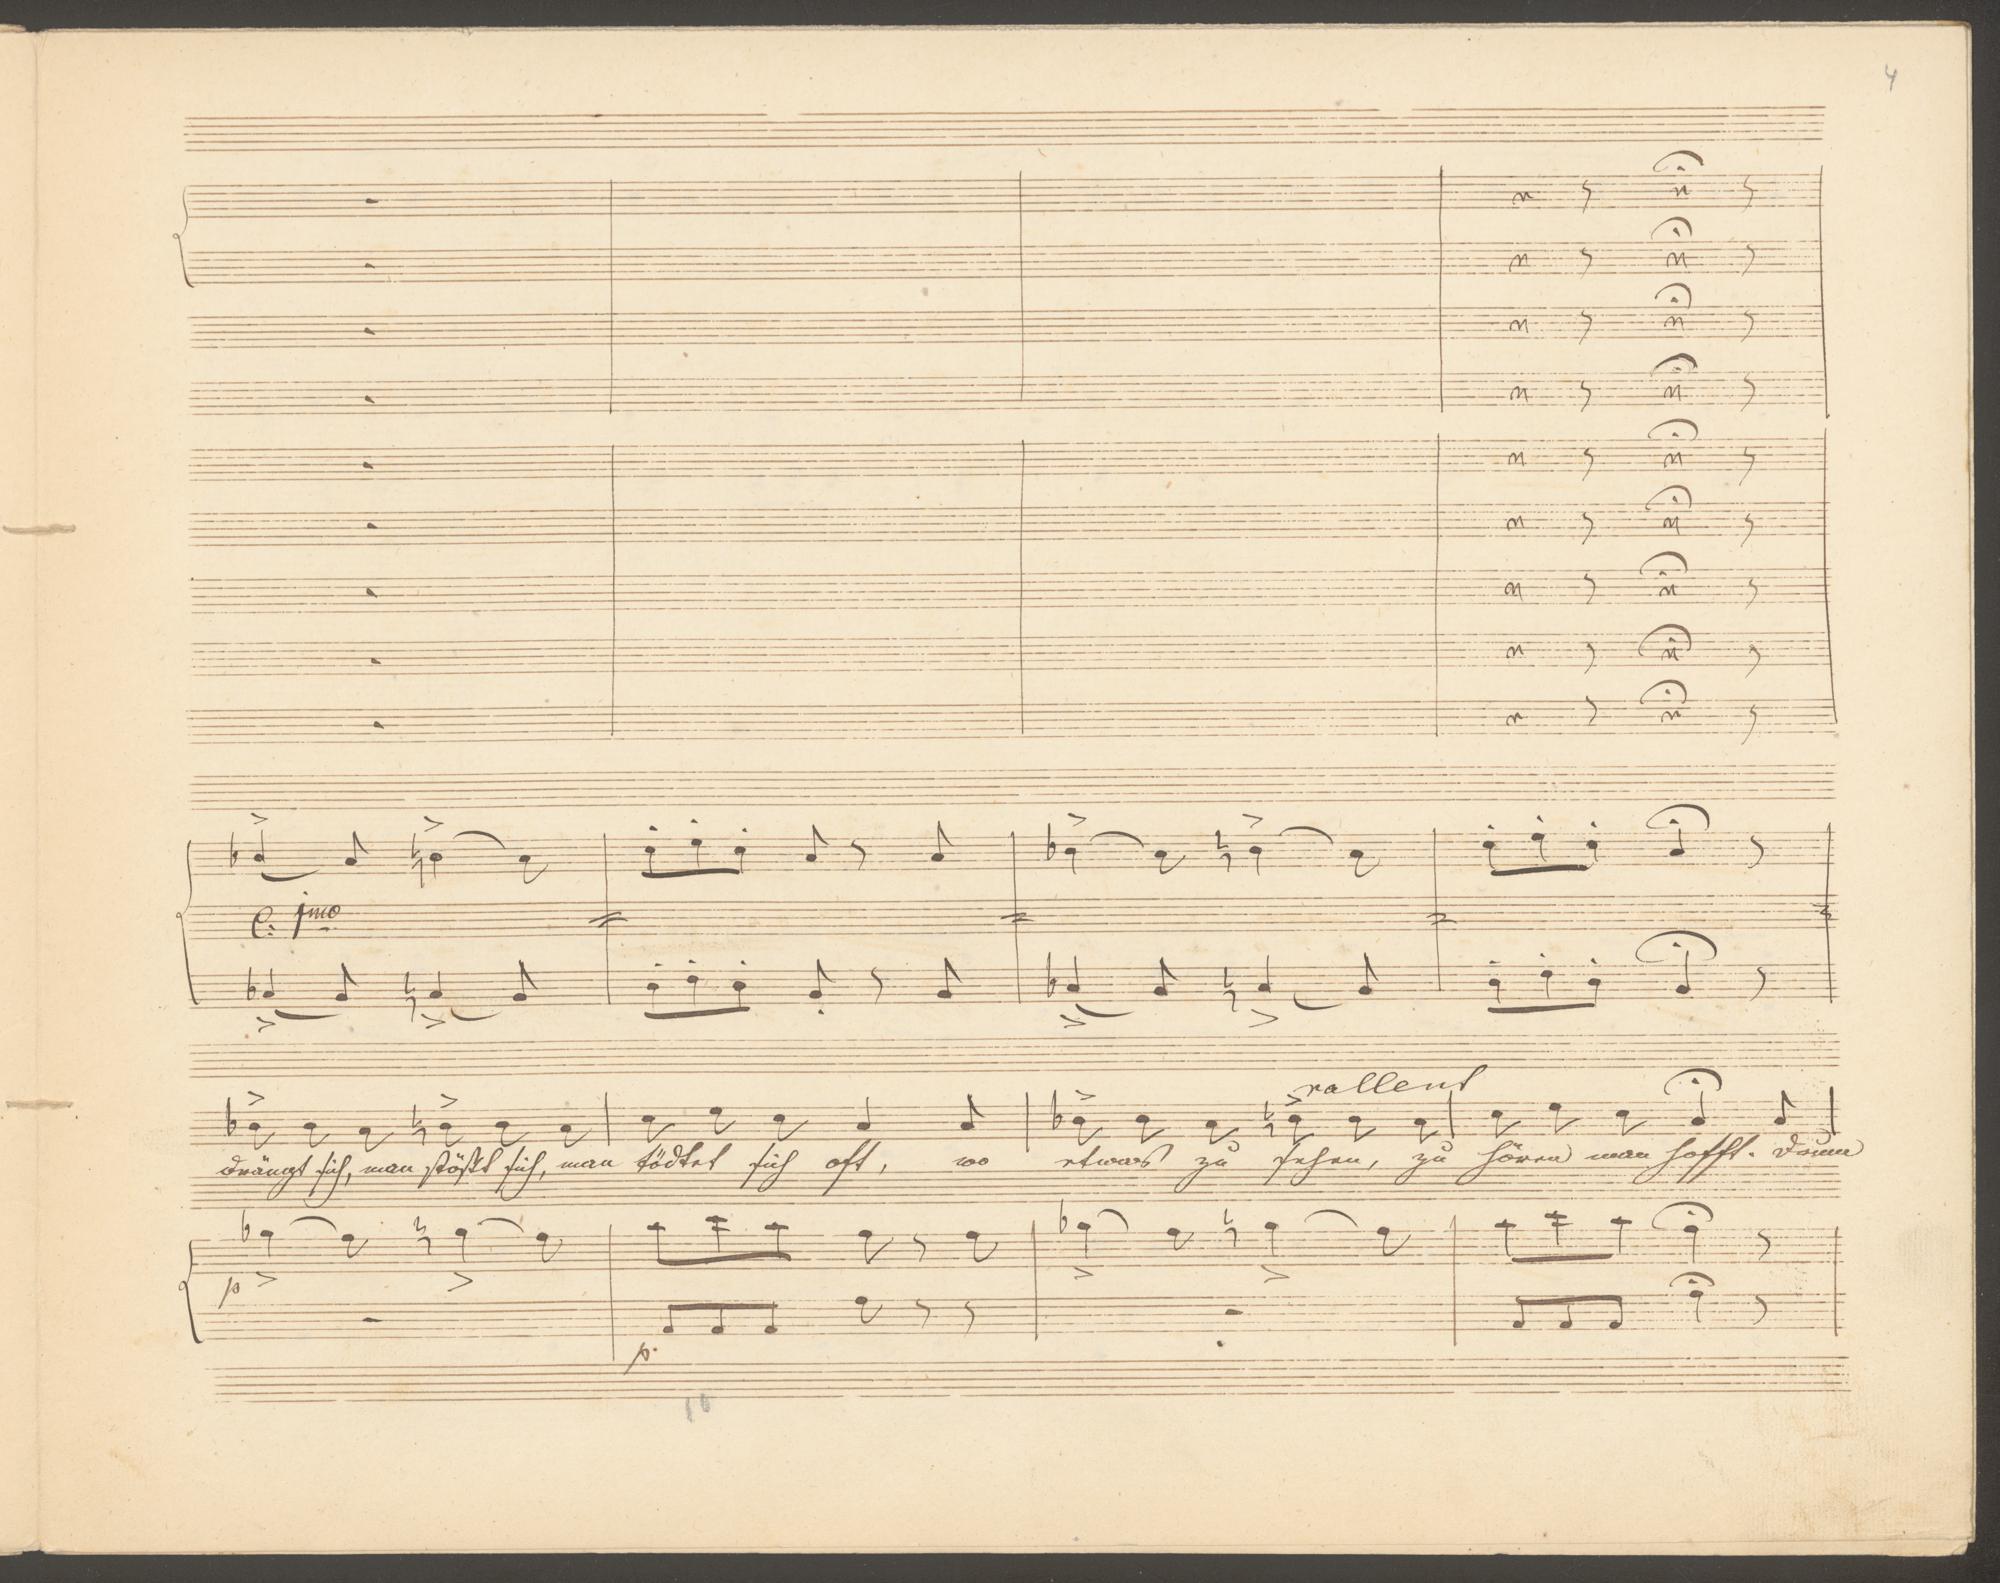 4
C. 1mo
rallent
drängt sich, man stößt sich, man tödtet sich oft, wo etwas zu sehen, zu hören man hofft. Drum
p
p.